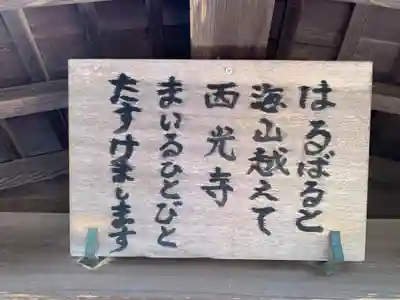 はるばると
海山越えて
西光寺
まいるひとびと
たすけまします